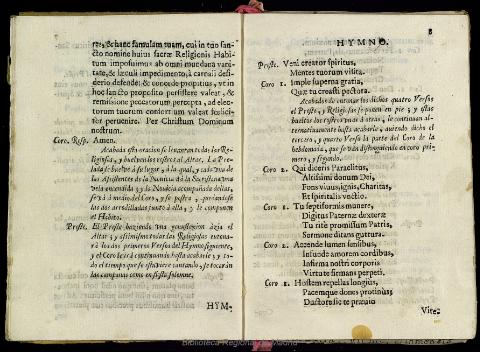 re, & hanc famulam tuam, cui in tuo san-
cto nomine huius sacræ Religionis Habi-
tum imposuimus ab omni mundana vani-
tate, & sæculi impedimento, à carnali desi-
derio defende: & concede propitius, vt in
hoc sancto proposito persistere valeat, &
remissione peccatorum percepta, ad elec-
torum tuorum consortium valeat fælici-
ter peruenire. Per Christum Dominum
nostrum.
Coro. Resp. Amen.
Acabada esta oracion se levantaran todas las Re-
ligiosas, y bueltos los rostros al Altar. La Pre-
lada se buelve à su lugar, à la qual, y
los Assistentes de la Novicia
vela encendida y la Novicia acompañada dellas,
se và à medio del Coro, y se postra
las dos arrodilladas junto à ella, y le componen
el Habito.
Preste. El Preste haziendo vna genuflexion àzia el
Altar, y assimismo todas las Religiosas entona-
rà los dos primeros Versos del Hymno siguiente,
y el Coro le irà continuando hasta acabarle; y to-
do el tiempo que se estuviere cantando, se tocaràn
las campanas como en fiesta solemne.
HYM-
8
HYMNO.
Preste. Veni creator spiritus,
Mentes tuorum visita.
Coro 1. Imple superna gratia,
Quæ tu creasti pectora.
Acabados de entonar los dichos quatro Versos
el Preste, y Religiosas se ponen en pie; y estas
bueltos los rostros vnas à otras, le continuan al-
ternativamente hasta acabarle, aviendo dicho el
tercero, y quarto Verso la parte del Coro de la
hebdomada, que se vàn distinguiendo en coro pri-
mero, y segundo.
Coro 2. Qui diceris Paraclitus,
Altissimi donum Dei,
Fons viuus, ignis, Charitas,
Et spiritalis vnctio.
Coro 1. Tu septiformis munere,
Digitus Paternæ dexteræ
Tu ritè promissum Patris,
Sermone ditans guttura.
Coro 2. Accende lumen sensibus,
Infunde amorem cordibus,
Infirma nostri corporis
Virtute firmans perpeti.
Coro 1. Hostem repellas longius,
Pacemque dones protinus,
Ductore sic te præuio
Vite-
Biblioteca Regional de Madrid